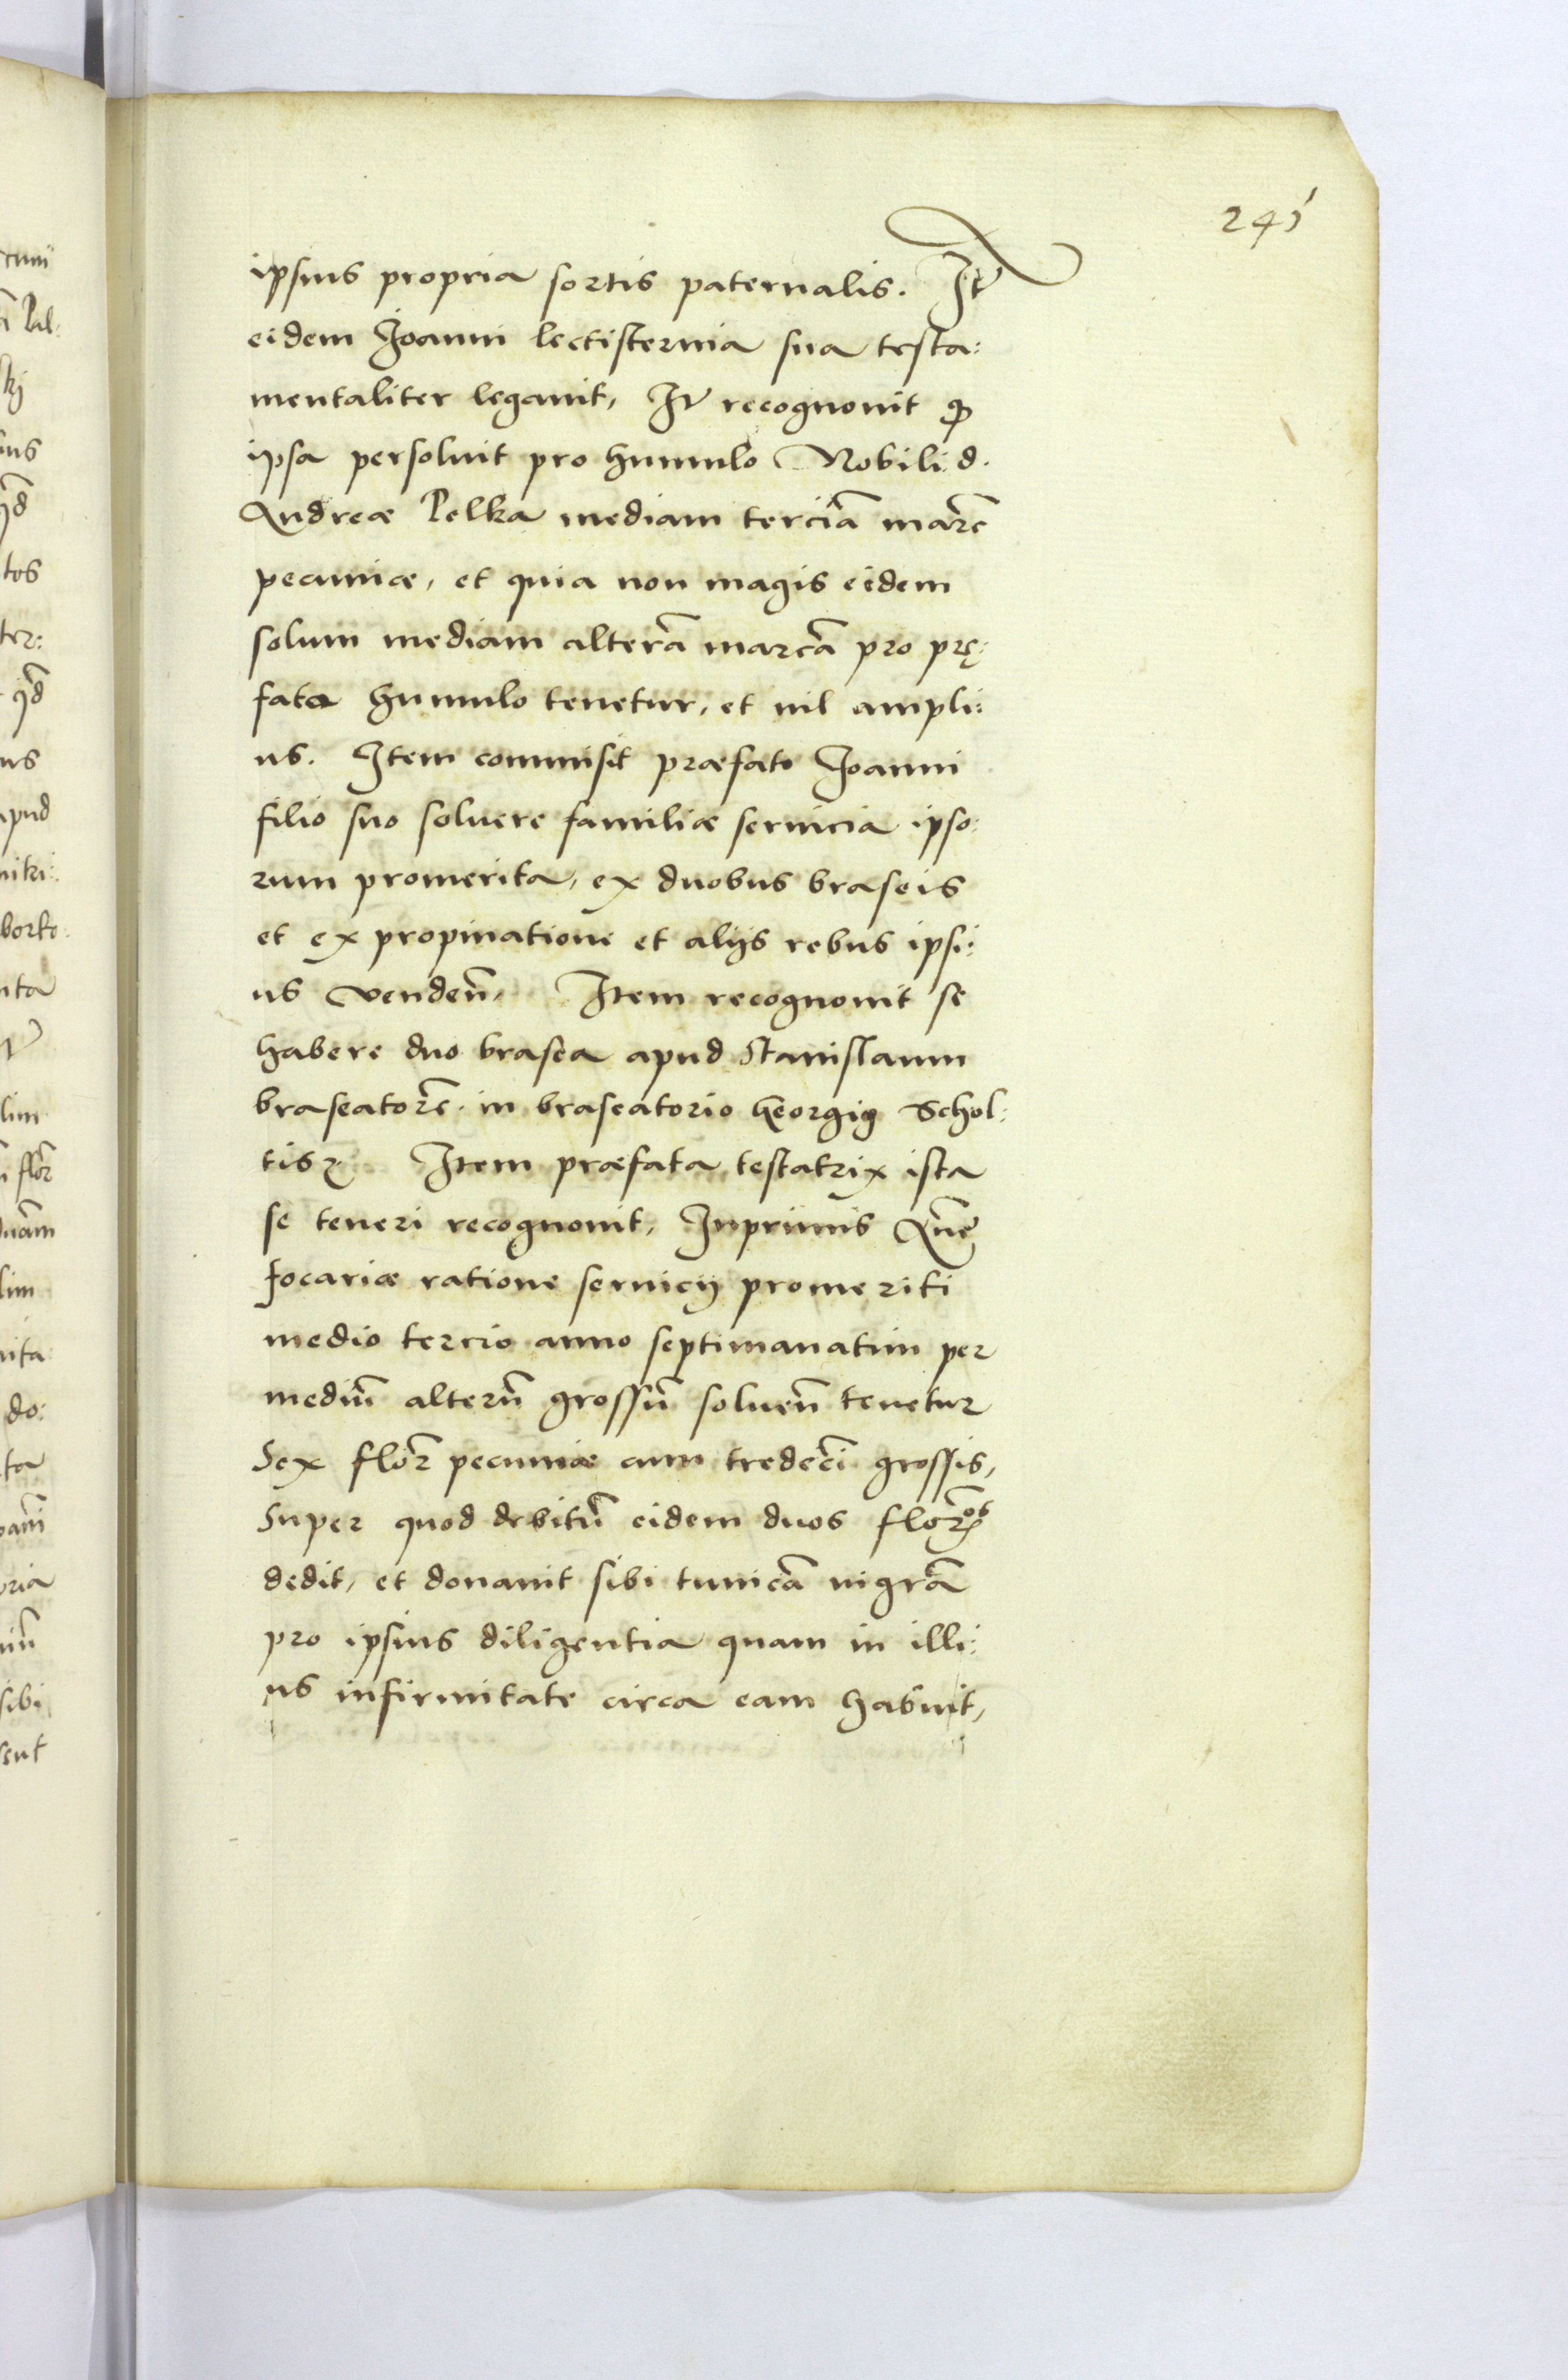 241
ipsius propria sortis paternalis. It
eidem Joanni lectisternia sua testa:
mentaliter legauit, It recognouit ꝙ
ipsa persoluit pro humulo Nobili d.
Andreæ Pelka mediam terciā marc̄
pecuniæ, et quia non magis eidem
solum mediam alterā marcā pro prę:
fato humulo tenetur, et nil ampli:
us. Item commisit præfato Joanni
filio suo soluere familiæ seruicia ipso:
rum promerita, ex duobus braseis
et ex propinatione et alijs rebus ipsi:
us venden̄, Item recognouit se
habere duo brasea apud Stanislaum
braseatorē in braseatorio Georgij Schol:
tis. Item præfata testatrix ista
se teneri recognouit, Inprimis Annę
focariæ ratione seruicij promeriti
medio tercio anno septimanatim per
mediū alterū grossū soluen̄ tenetur
Sex flor̄ pecuniæ cum tredeci grossis,
Super quod debitū eidem duos flor̄os
dedit, et donauit sibi tunicā nigrā
pro ipsius diligentia quam in illi:
us infirmitate circa eam habuit,